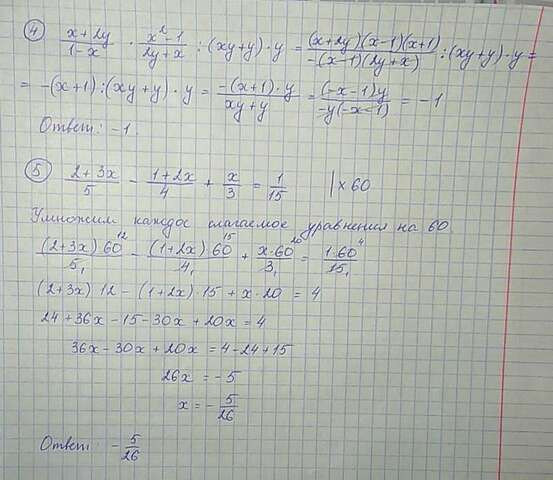 ④ (x+2y)/(1-x) · (x²-1)/(2y+x) : (xy+y) · y = ((x+2y)(x-1)(x+1))/(-(x-1)(2y+x)) : (xy+y) · y =
= -(x+1) : (xy+y) · y = (-(x+1)·y)/(xy+y) = ((-x-1)y)/(-y(-x-1)) = -1
Ответ: -1.
⑤ (2+3x)/5 - (1+2x)/4 + x/3 = 1/15 | x 60
Умножим каждое слагаемое уравнения на 60
((2+3x)60¹²)/5₁ - ((1+2x)60¹⁵)/4₁ + (x·60²⁰)/3₁ = (1·60⁴)/15₁
(2+3x)12 - (1+2x)·15 + x·20 = 4
24+36x-15-30x+20x=4
36x-30x+20x=4-24+15
26x=-5
x=-5/26
Ответ: -5/26